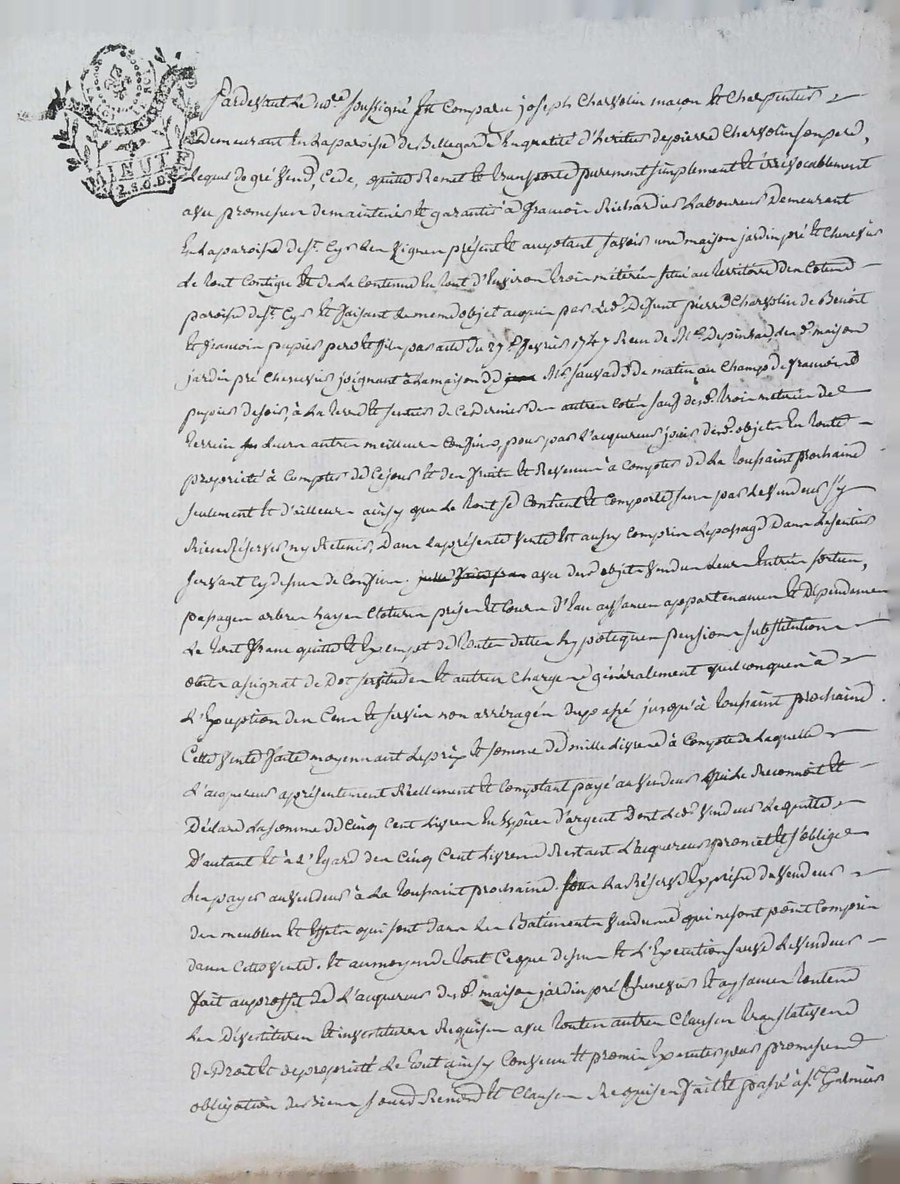 MIEUT
2.S.O.D.
Pardevant Le no.re soussigné Est Comparu joseph Charvolin maçon Et Charpentier
Demeurant En La paroisse de Bellegarde En qualité d'heritier de pierre Charvolin son pere,
Lequel de gré Vend, Cede, quitte Remet Et transporte purement simplement Et irrévocablement
avec promesses de maintenir Et garantir à francois Richard Laboureur Demeurant
En La paroisse de s.t Cyr Les Vignes présent Et acceptant savoir une maison jardin pré Et Chenevier
Le tout Contigu Et de La Contenue En tout d'Environ trois métérées situé au territoire des
paroisse de s.t Cyr Et faisant Le meme objet acquis par Led.t Défunt pierre Charvolin de Benoit
Et francois pupier pere Et fils par acte du 27.e fevrier 1747 Reçu de M.e Depinhac, Lesd. maison
jardin pré Chenevier joignant à La maison de M.e de matin au Champ de francois
pupier de soir, à La terre Et sentier de Ce dernier des autres Cotés sauf desd. trois meterées de
terrein Leurs autres meilleurs Confins, pour par L'acquereur jouir desd. objets En toute
propriété à Compter de Ce jour Et des fruits Et Revenus à Compter de La toussaint prochaine
seulement Et d'ailleurs ainsy que Le tout se Contient Et Comporte sans par Le Vendeur s'y
Rien Réserver ny Retenir, Dans La présente Vente Est aussy Compris Le passage Dans Le sentier
servant Cy dessus de Confin. avec desd. objets Vendus Leurs Entrées sorties,
passages arbres hayes Clotures prises Et Cours d'Eau aysances appartenances Et Dépendances
Le tout franc quitte Et Exempt de toutes dettes hypoteques pensions substitutions
obits assignat de Dot servitudes Et autres Charges généralement quelconques à
L'Exception des Cens Et servis non arréragés du passé jusqu'à toussaint prochaine.
Cette Vente faite moyennant Le prix Et somme de mille Livres à Compte de Laquelle
L'acquereur a présentement Réellement Et Comptant payé au Vendeur qui Le Reconnoit Et
Déclare La somme de Cinq Cent Livres En Espèces d'argent Dont Led. Vendeur Le quitte
D'autant Et à L'Egard des Cinq Cent Livres Restant L'acquereur promet Et s'oblige
Les payer au Vendeur à La toussaint prochaine. sous La Réserve Expresse du Vendeur
des meubles Et Effets qui sont dans Les Batiments Vendus qui ne sont point Compris
dans Cette Vente. Et au moyen de tout Ce que dessus Et L'Execution sauve Le Vendeur
fait au proffit de L'acquereur desd. maison jardin pré Chenevier Et aysances toutes
Les Dévestitures Et investitures Requises avec toutes autres Clauses translatives
de Droit Et de propriété Le tout ainsy Convenu Et promis Executer par promesses
obligation de biens soumis Renon.s Et Clauses Requises fait Et passé à s.t Galmier